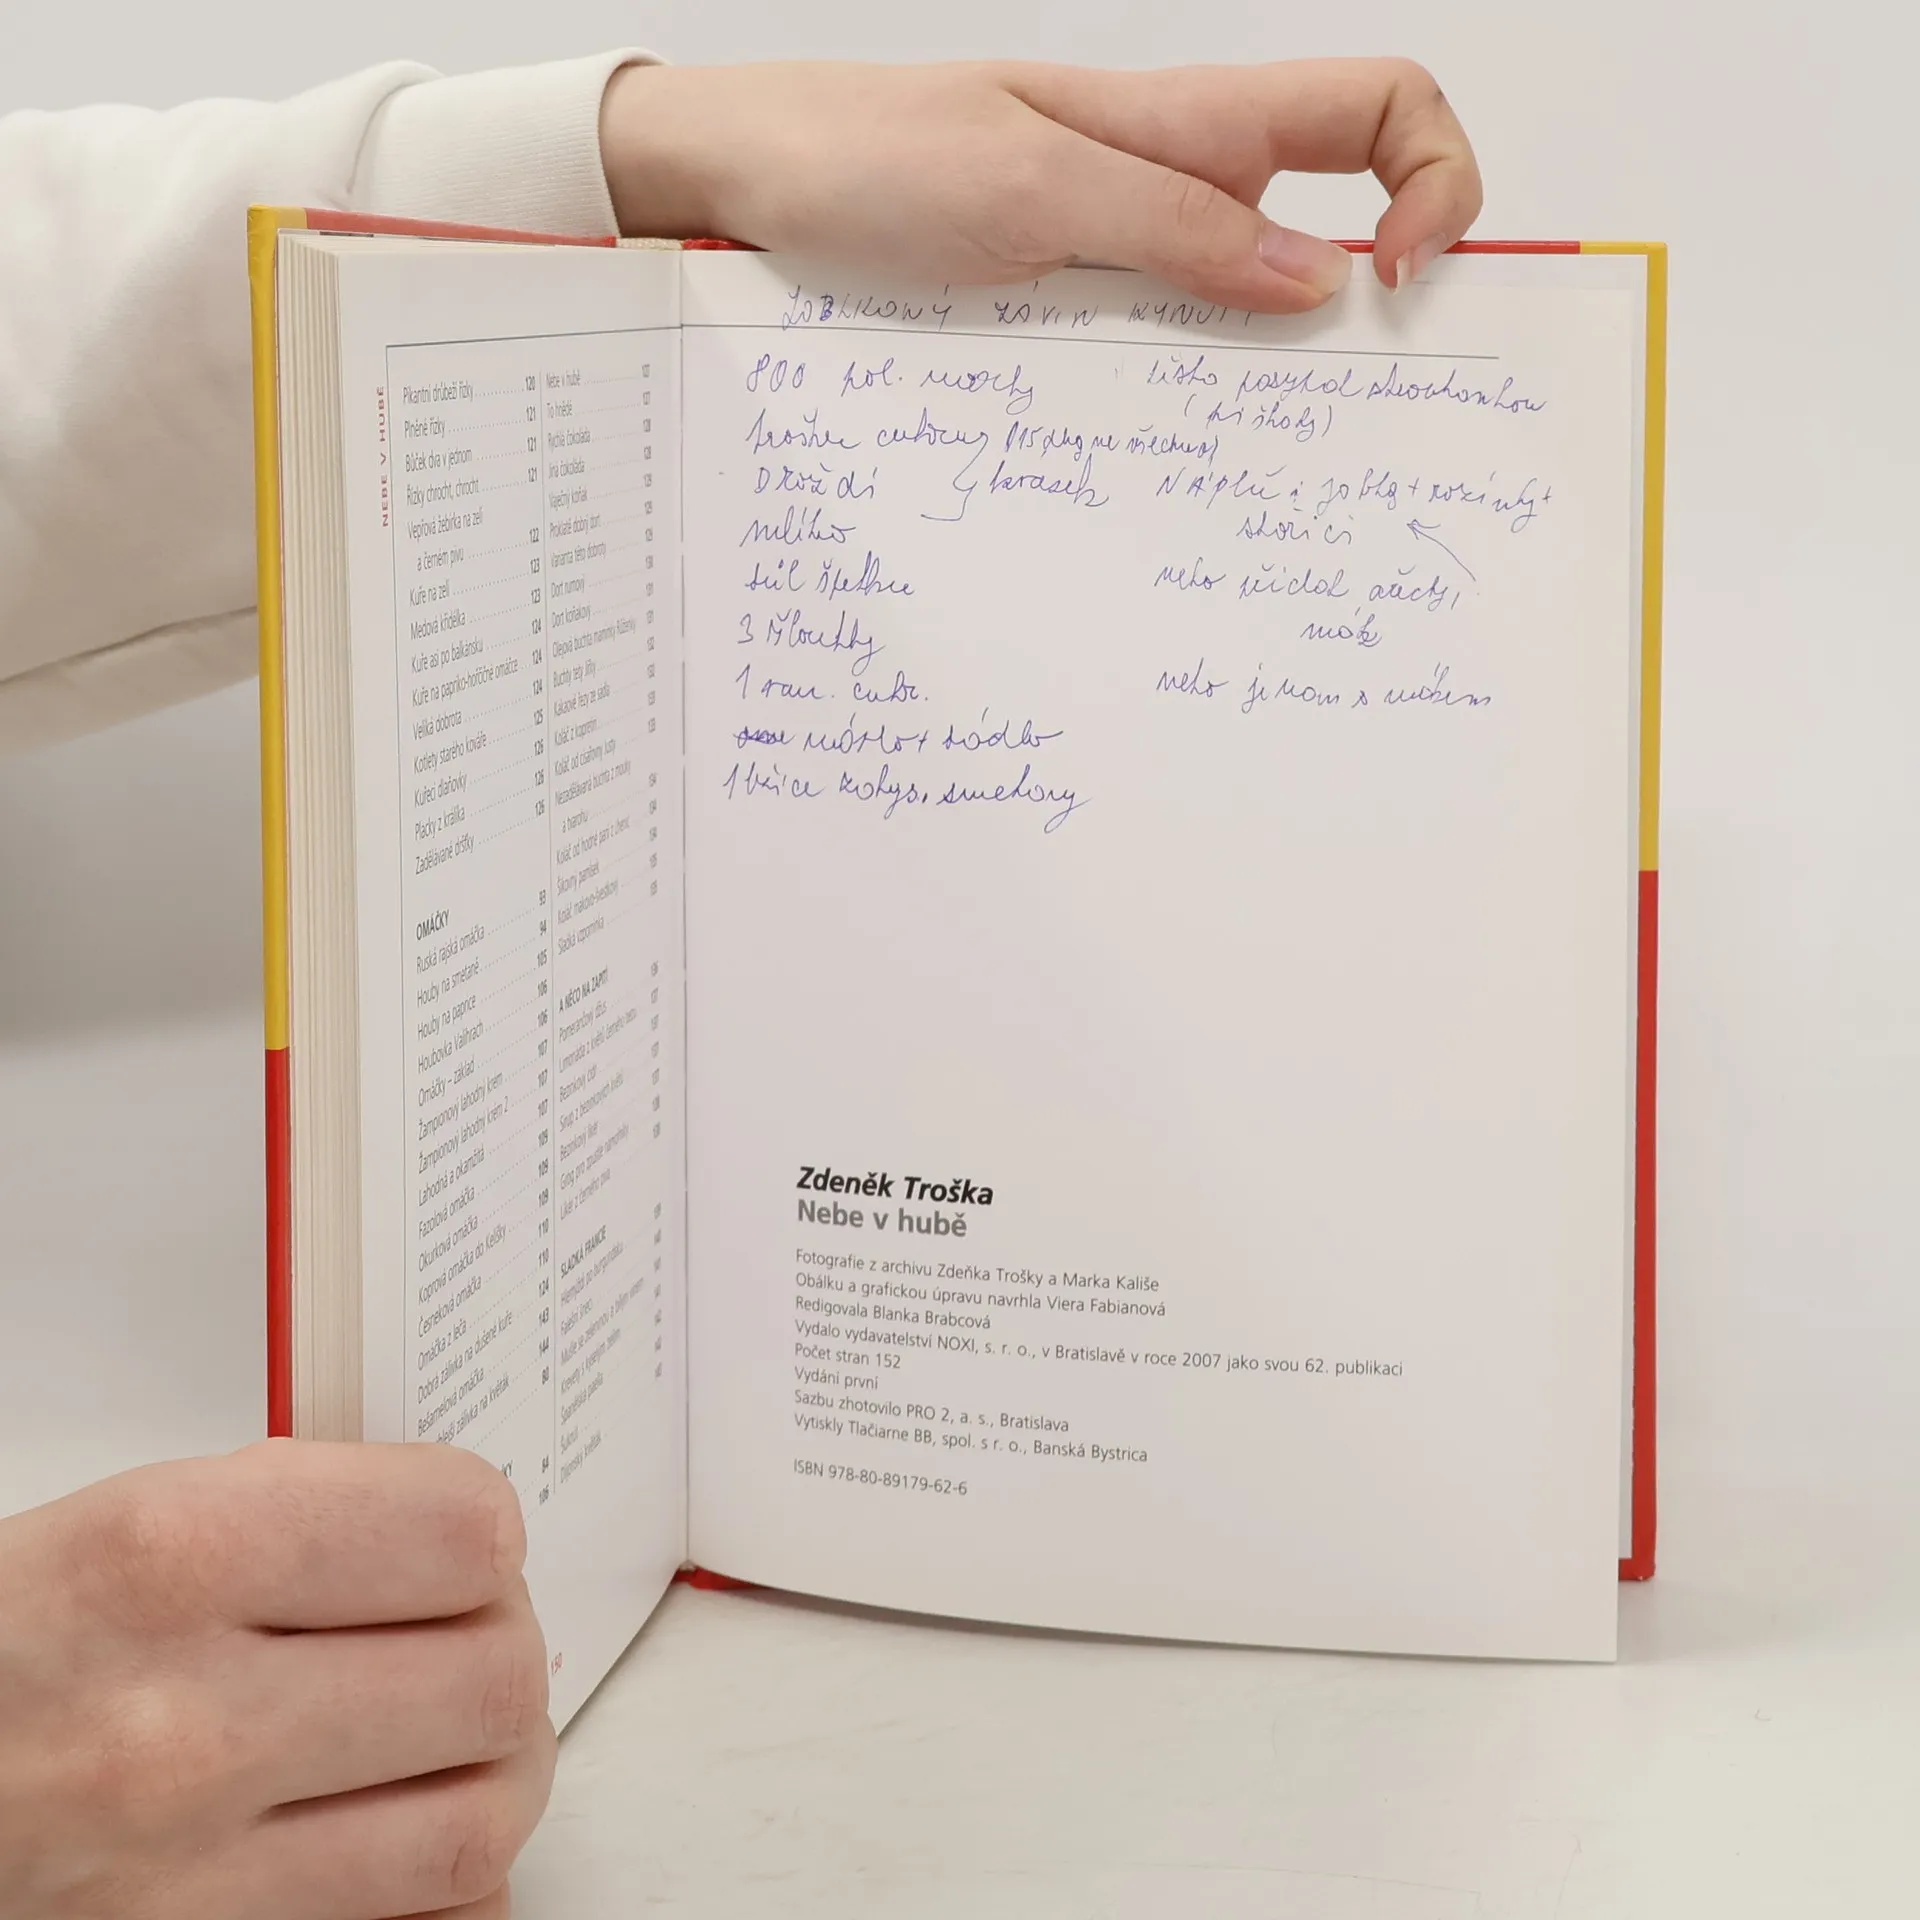 NEBE V HUBĚ
Pikantní drůbeží řízky 120
Plněné řízky 121
Bůček dva v jednom 121
Řízky chrocht, chrocht 121
Vepřová žebírka na zelí
a černém pivu 122
Kuře na zelí 123
Medová křidélka 123
Kuře asi po balkánsku 124
Kuře na papriko-hořčičné omáčce 124
Veliká dobrota 124
Kotlety starého kováře 125
Kuřecí dlaňovky 126
Placky z králíka 126
Zadělávané dršťky 126
OMÁČKY
Ruská rajská omáčka 93
Houby na smetaně 94
Houby na paprice 105
Houbovka Valihrach 106
Omáčky – základ 106
Žampionový lahodný krém 107
Žampionový lahodný krém 2 107
Lahodná a okamžitá 107
Fazolová omáčka 109
Okurková omáčka 109
Koprová omáčka do Kelišky 109
Česneková omáčka 110
Omáčka z leča 110
Dobrá zálivka na dušené kuře 124
Bešamelová omáčka 143
zálivka na květák 144
80
84
106
Nebe v hubě 127
To hnědé 127
Rychlá čokoláda 128
Jiná čokoláda 128
Vaječný koňak 129
Prokletě dobrý dort 129
Varianta této dobroty 129
Dort rumový 130
Dort koňakový 131
Olejová buchta maminky Růženky 131
Buchty tety Jiřky 132
Kakaové řezy ze sadu 132
Koláč z kopretin 133
Koláč od císařovny Justy 133
Nezadělávaná buchta z mouky
a tvarohu 134
Koláč od hodné paní z Cheruc 134
Šikovný pamlsek 134
Koláč makovo-švestkový 135
Sladká vzpomínka 135
A NĚCO NA ZAPITÍ
Pomerančový džus 136
Limonáda z květů černého bezu 137
Bezinkový cidr 137
Sirup z bezinkových květů 137
Bezinkový likér 137
Grog pro zpustlé námořníky 138
Likér z černého piva 138
SLADKÁ FRANCIE
Hlemýždi po burgundsku
Falešní šneci
Mušle se zeleninou a bílým vínem
Krevety s kyselým zelím
Španělská paella
Dijonský květák
150
JABLKOVÝ ZÁVIN KYNUTÝ
800 pol. mouky
trošku cukru (15 dkg ne všechno)
DROŽDÍ } kvásek
mlíko
sůl špetku
3 žloutky
1 van. cukr.
máslo + sádlo
1 lžíce zakys. smetany
těsto posypat strouhankou
(piškoty)
NÁPLŇ: jablka + rozinky +
skořici
nebo přidat ořechy,
mák
nebo jenom s mákem
Zdeněk Troška
Nebe v hubě
Fotografie z archivu Zdeňka Trošky a Marka Kališe
Obálku a grafickou úpravu navrhla Viera Fabianová
Redigovala Blanka Brabcová
Vydalo vydavatelství NOXI, s. r. o., v Bratislavě v roce 2007 jako svou 62. publikaci
Počet stran 152
Vydání první
Sazbu zhotovilo PRO 2, a. s., Bratislava
Vytiskly Tlačiarne BB, spol. s r. o., Banská Bystrica
ISBN 978-80-89179-62-6